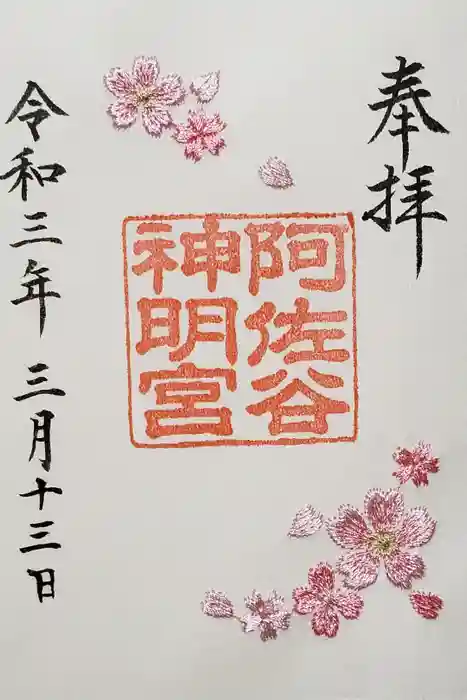 奉拝
阿佐谷
神明宮
令和三年 三月十三日